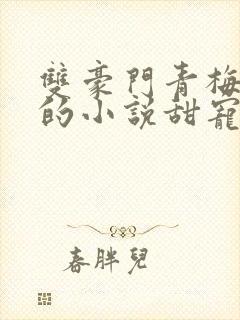 雙豪門青梅
的小說甜寵
春胖兒